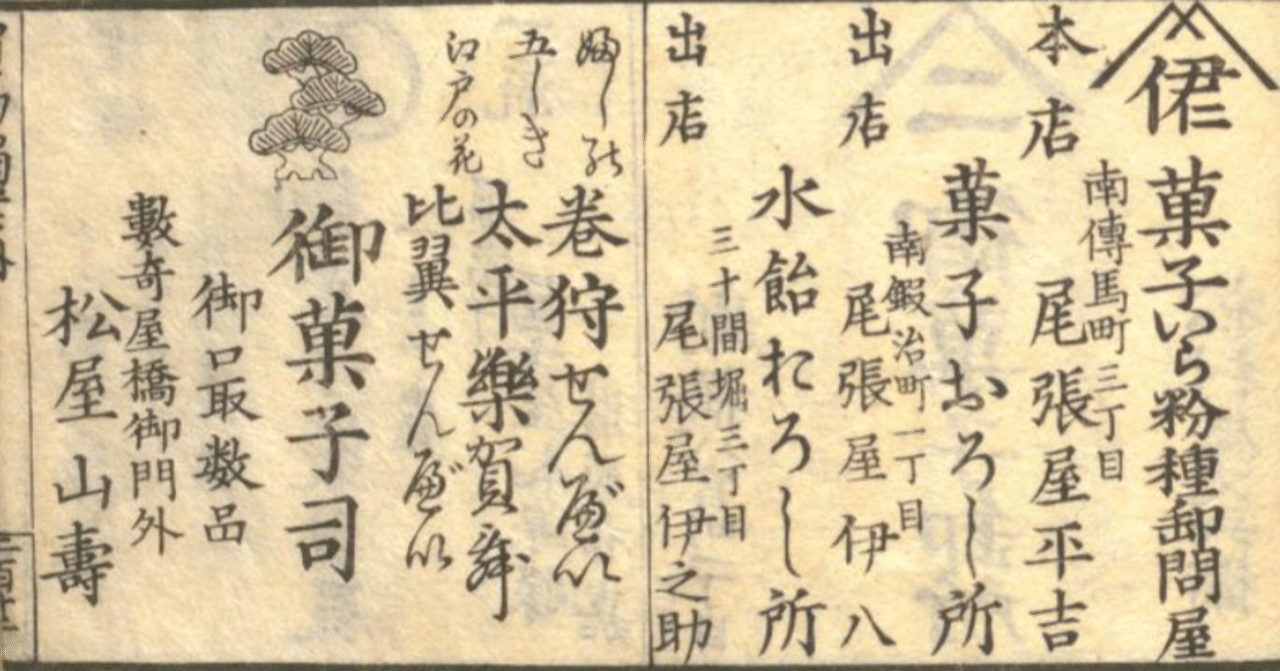 伊
菓子いら粉種卸問屋
南傳馬町三丁目
本店 尾張屋平吉
菓子おろし所
南鍜冶町一丁目
出店 尾張屋伊八
水飴おろし所
三十間堀三丁目
出店 尾張屋伊之助
巻狩せんべい
五しき
太平樂賀舞
江戸の花
比翼せんべい
御菓子司
御口取数品
數奇屋橋御門外
松屋山壽